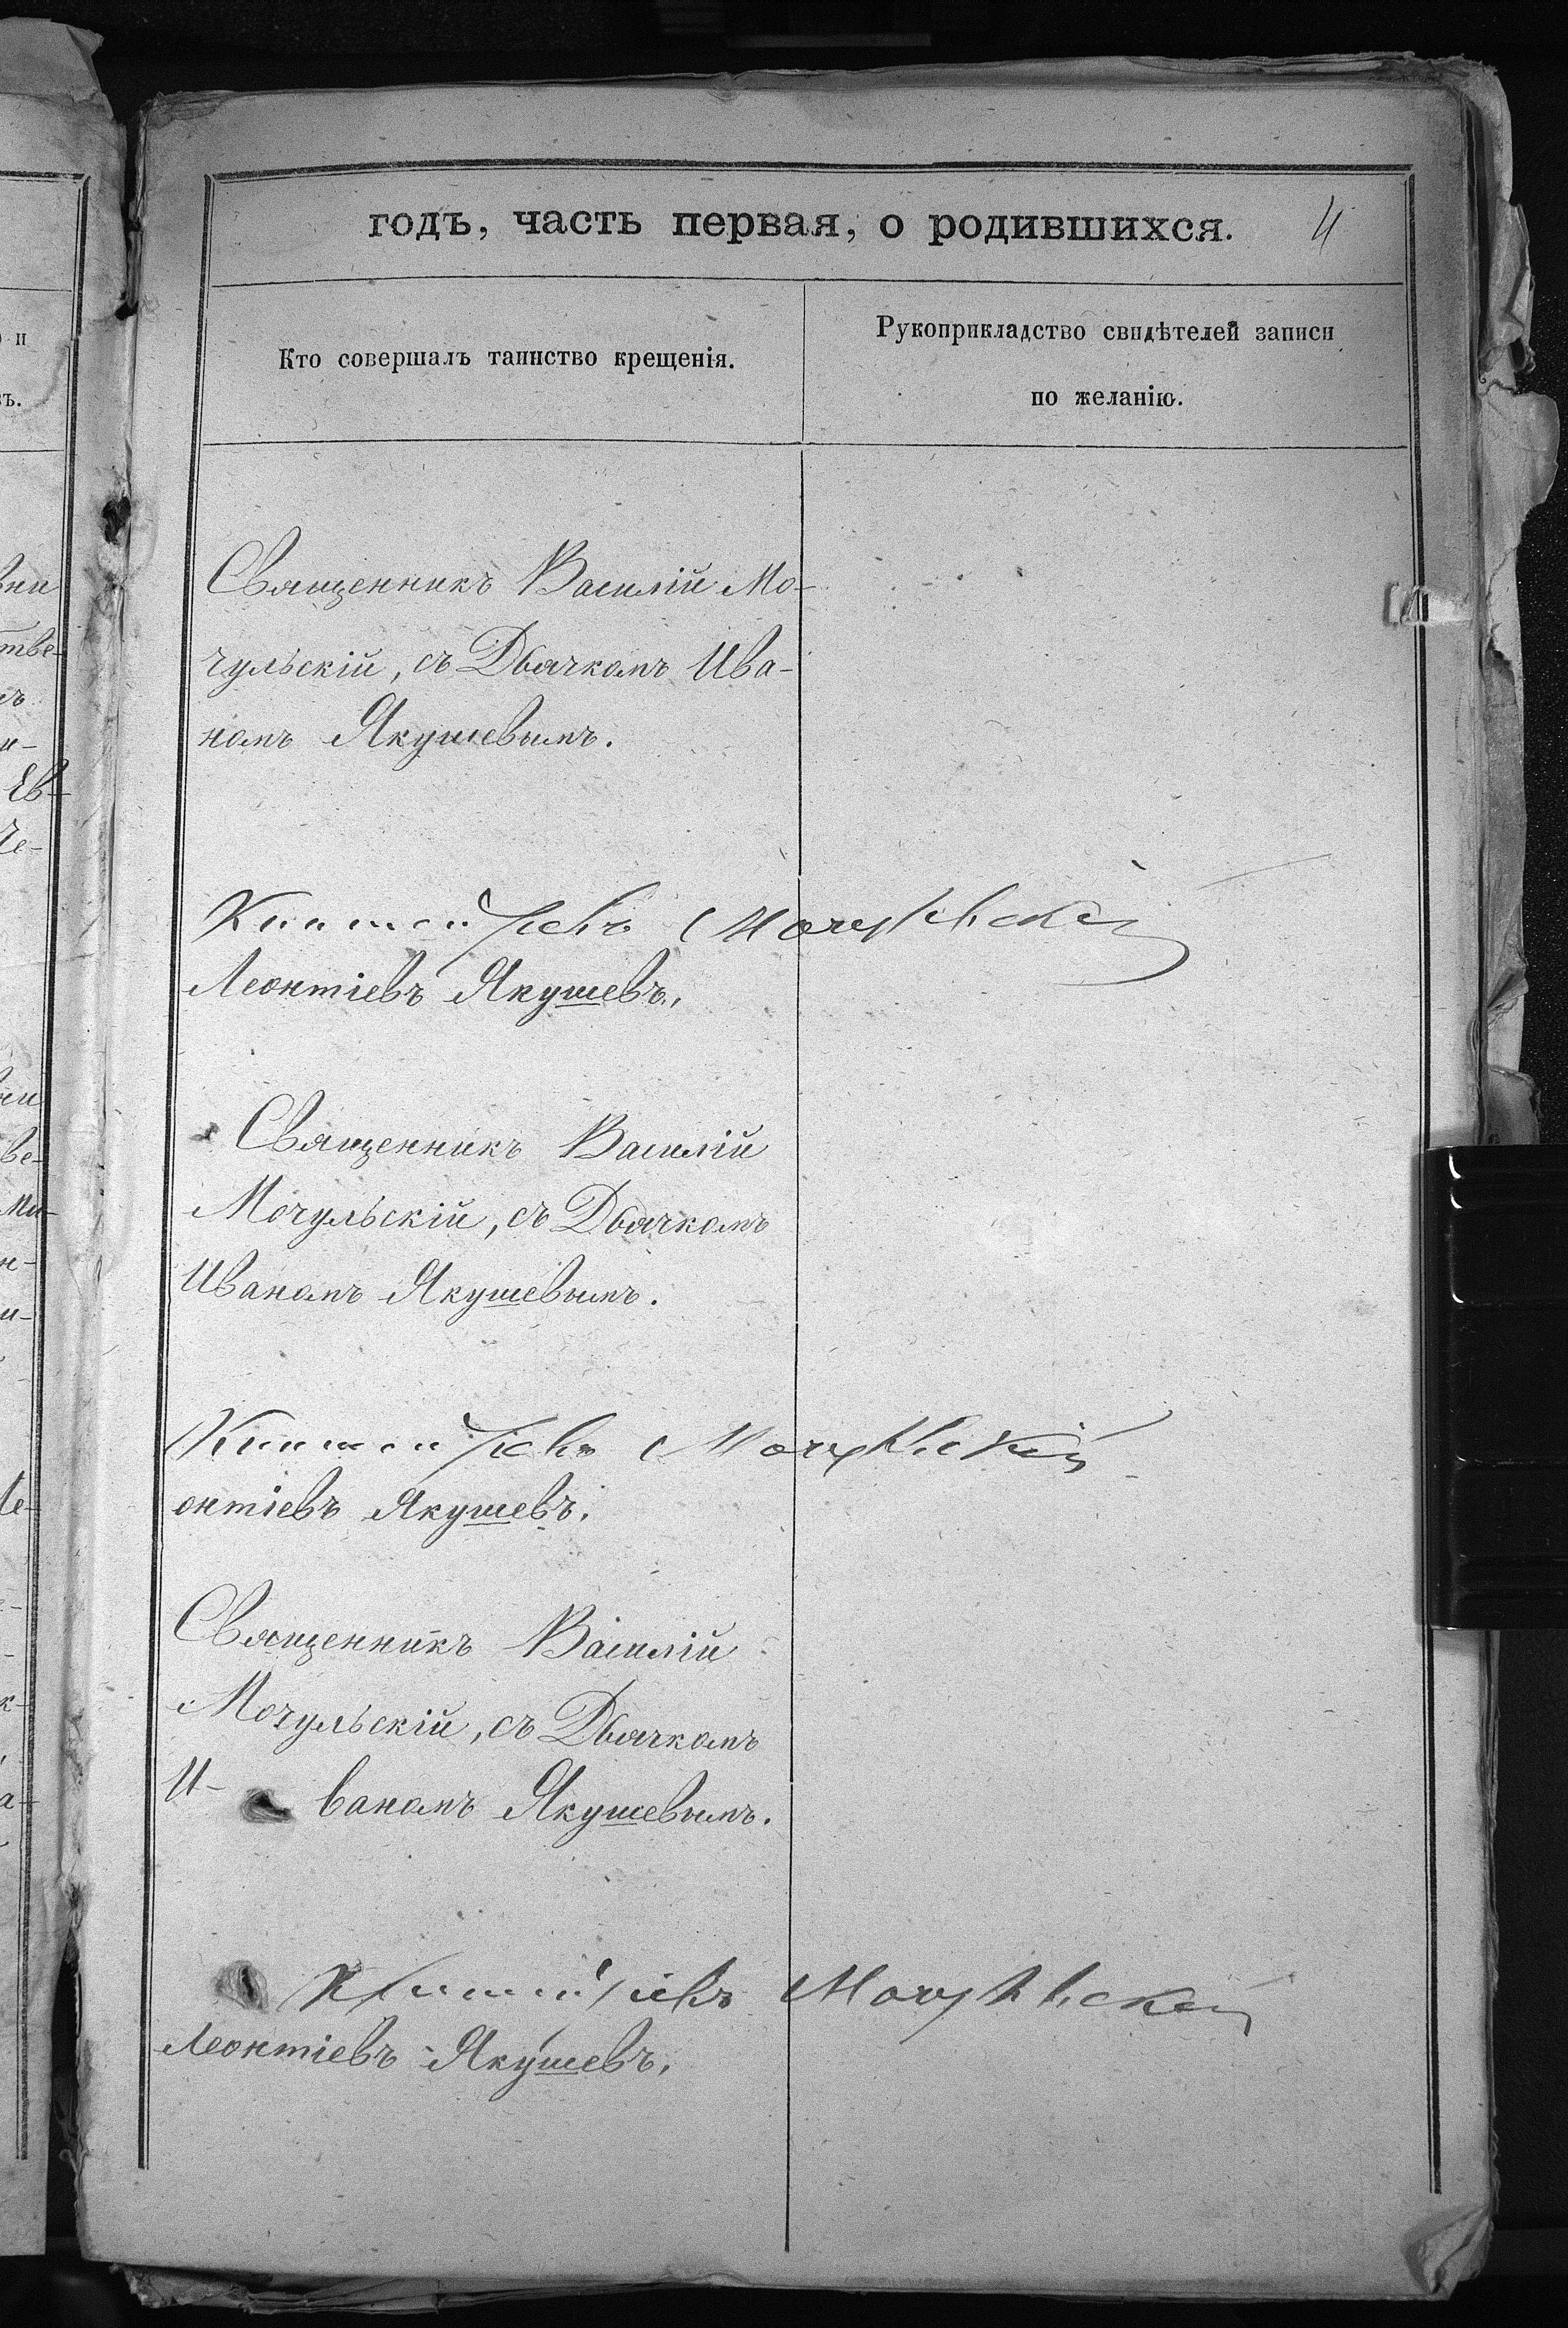 годъ, часть первая, о родившихся. 4
Кто совершалъ таинство крещенія.
Рукоприкладство свидѣтелей записи
по желанію.
Священникъ Василій Мо-
чульскій, съ Дьячкомъ Ива-
номъ Якушевымъ.
Мочульскій
Леонтіевъ Якушевъ,
Священникъ Василій
Мочульскій, съ Дьячкомъ
Иваномъ Якушевымъ.
Мочульскій
онтіевъ Якушевъ.
Священникъ Василій
Мочульскій, съ Дьячкомъ
И- ваномъ Якушевымъ.
Мочульскій
Леонтіевъ Якушевъ,